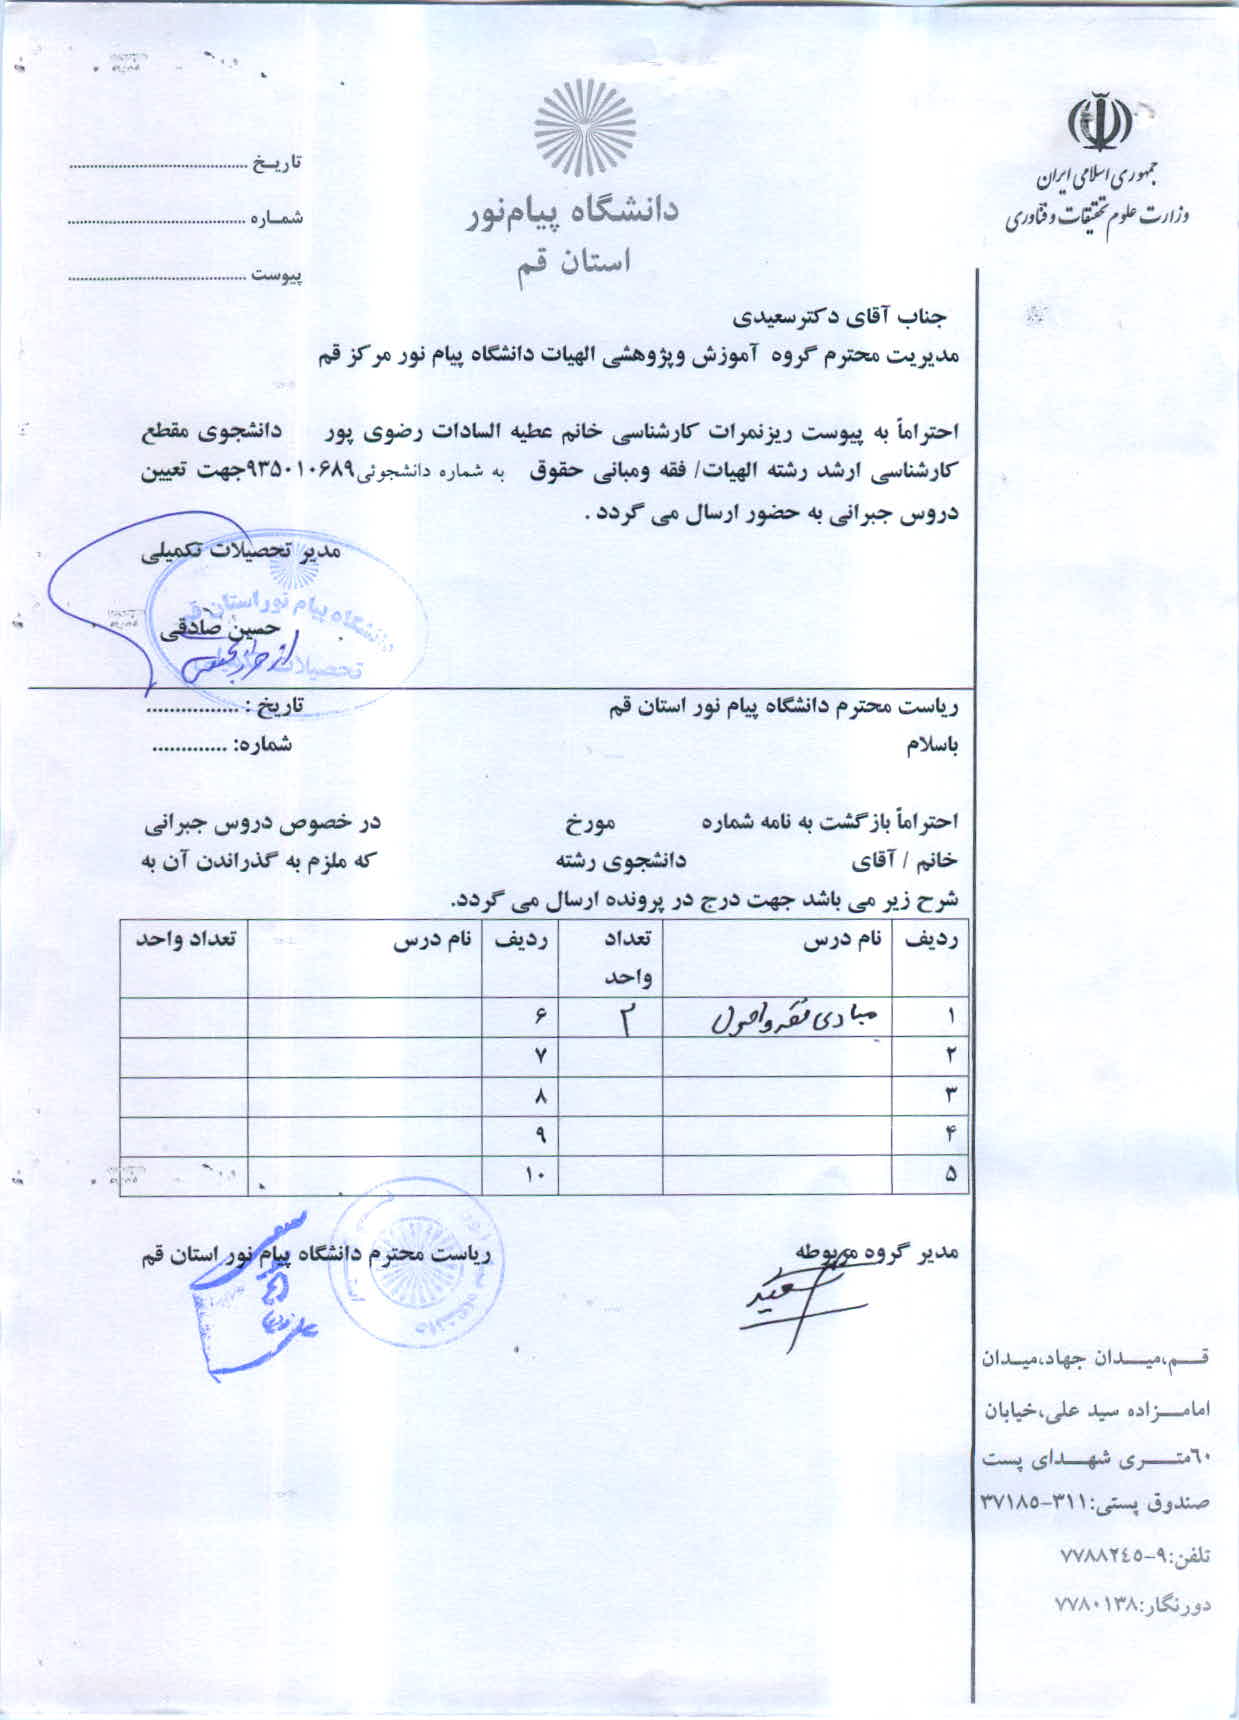 جمهوری اسلامی ایران
وزارت علوم تحقیقات و فناوری
دانشگاه پیام‌نور
استان قم
تاریـخ ..........................................
شمـاره ..........................................
پیوست ..........................................
جناب آقای دکترسعیدی
مدیریت محترم گروه آموزش وپژوهشی الهیات دانشگاه پیام نور مرکز قم
احتراماً به پیوست ریزنمرات کارشناسی خانم عطیه السادات رضوی پور دانشجوی مقطع
کارشناسی ارشد رشته الهیات/ فقه ومبانی حقوق به شماره دانشجوئی۹۳۵۰۱۰۶۸۹جهت تعیین
دروس جبرانی به حضور ارسال می گردد .
مدیر تحصیلات تکمیلی
دانشگاه پیام نور استان قم
حسین صادقی
تحصیلات
ریاست محترم دانشگاه پیام نور استان قم تاریخ : ................
باسلام شماره: .............
احتراماً بازگشت به نامه شماره مورخ در خصوص دروس جبرانی
خانم / آقای دانشجوی رشته که ملزم به گذراندن آن به
شرح زیر می باشد جهت درج در پرونده ارسال می گردد.
ردیف نام درس تعداد واحد ردیف نام درس تعداد واحد
۱ مبادی فقه و اصول ۲ ۶
۲ ۷
۳ ۸
۴ ۹
۵ ۱۰
مدیر گروه مربوطه ریاست محترم دانشگاه پیام نور استان قم
قــم،میــدان جهاد،میـدان
امامــزاده سید علی،خیابان
٦٠متــری شهــدای پست
صندوق پستی:۳۱۱-۳۷۱۸۵
تلفن:۹-۷۷۸۸۲٤٥
دورنگار:۷۷۸۰۱۳۸